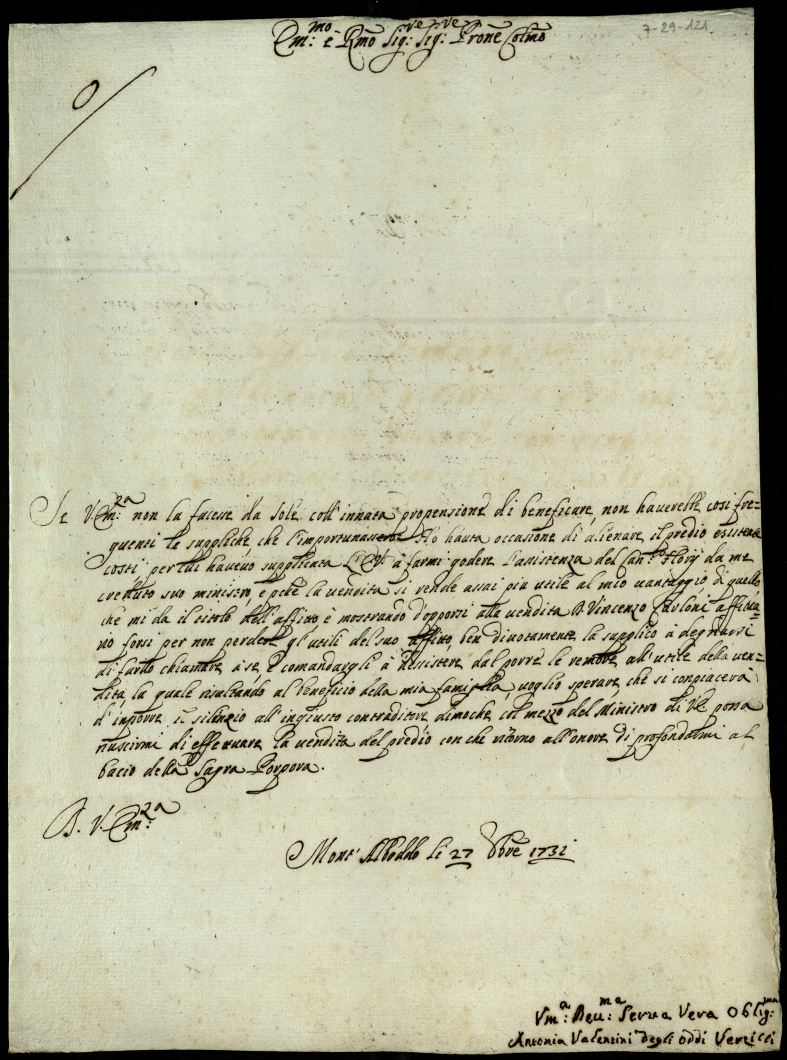 7-29-121
Em:mo e Rmo Sig:re Sig:re Prone Colmo
Se V. Em:za non la facesse da sole coll'innata propensione di beneficare, non haverebbe così fre=
quenti le suppliche che l'importunassero. Ho hauta occasione di alienare il predio esistente
costì, per cui havevo supplicata à farmi godere l'assistenza del Can:co Florij da me
creduto suo ministro, e pchè la vendita si rende assai piu utile al mio vantaggio di quello,
che mi da il titolo dell'affitto, è mostrando d'opporsi alla vendita Vincenzo affitua=
rio forsi per non perdere gl'utili del suo affitto, ben divotamente la supplico à degnarsi
di farlo chiamare à se, è comandargli à desistere dal porre le remore all'utile della ven=
dita, la quale risultando al beneficio della mia famiglia, voglio sperare, che si conpiacerà
d'inporre il silenzio all'ingiusto contraditore dimoche col mezzo del Ministro di V.E. possa
riuscirmi di effettuare la vendita del predio con che ritorno all'onore di profondarmi al
bacio della Sagra Porpora.
D. V. Em:za
Mont'Alboddo li 27 1731
Vm:a Deu:ma Serua Vera Oblig:ma
Antonia Valentini degli Oddi Verzicci